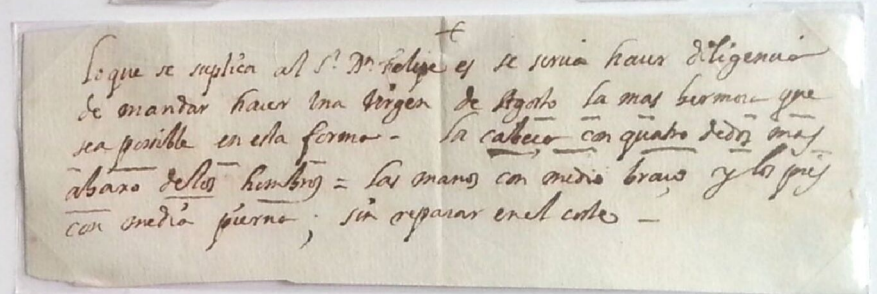 +
Lo que se suplica al S.r D.n Felipe es se sirva hacer diligencia
de mandar hacer una Virgen de Agosto la mas hermosa que
sea posible en esta forma - la cabeza con quatro dedos mas
abaxo de los hombros = las manos con medio brazo y los pies
con media pierna; sin reparar en el coste -